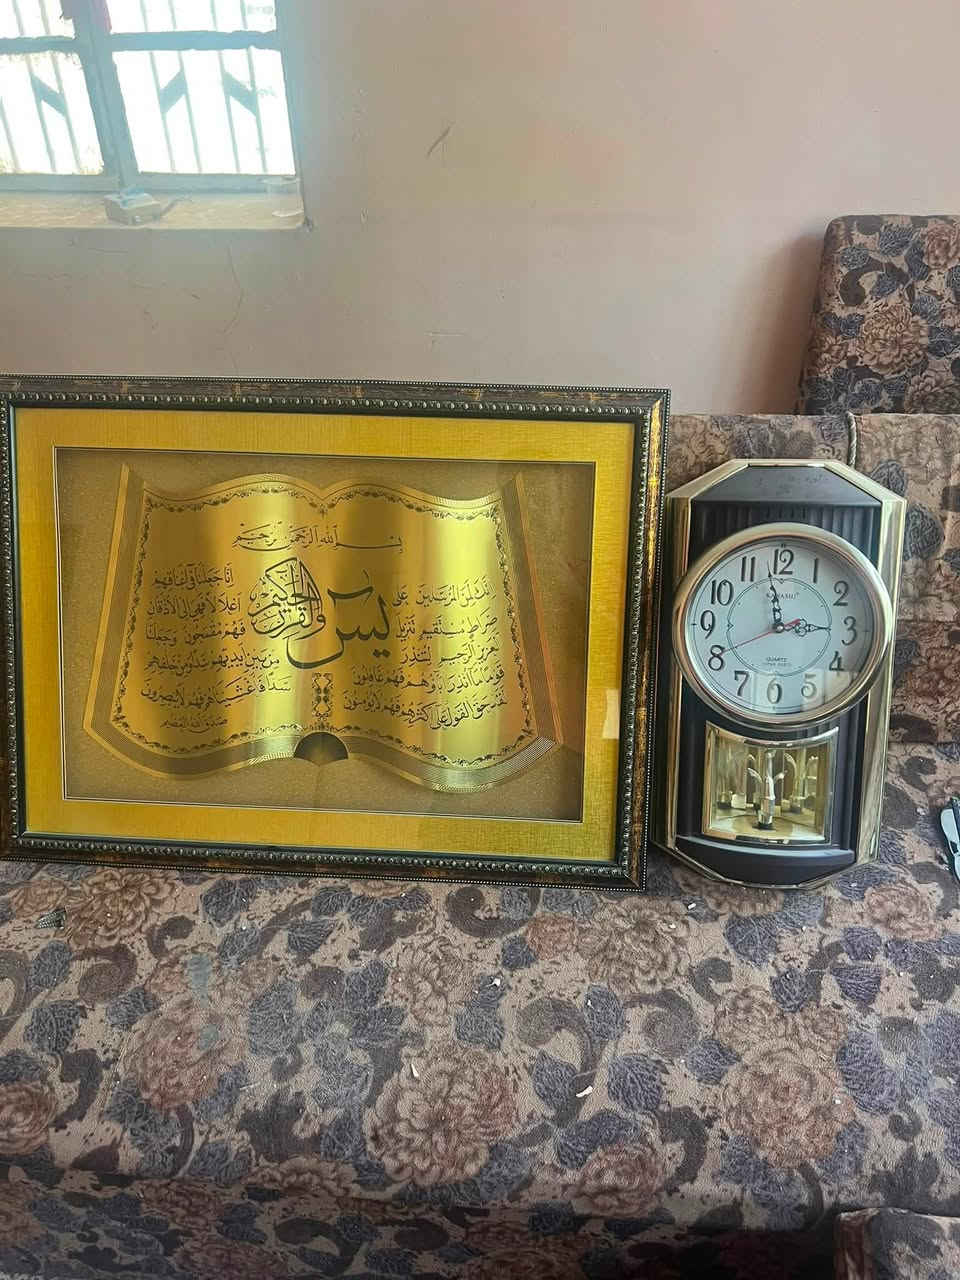 بسم الله الرحمن الرحيم
يس والقرآن الحكيم
إنك لمن المرسلين على
صراط مستقيم تنزيل
العزيز الرحيم لتنذر
قوما ما أنذر آباؤهم فهم غافلون
لقد حق القول على أكثرهم فهم لا يؤمنون
إنا جعلنا في أعناقهم
أغلالا فهي إلى الأذقان
فهم مقمحون وجعلنا
من بين أيديهم سدا ومن خلفهم
سدا فأغشيناهم فهم لا يبصرون
صدق الله العظيم
12
1
2
3
4
5
6
7
8
9
10
11
QUARTZ